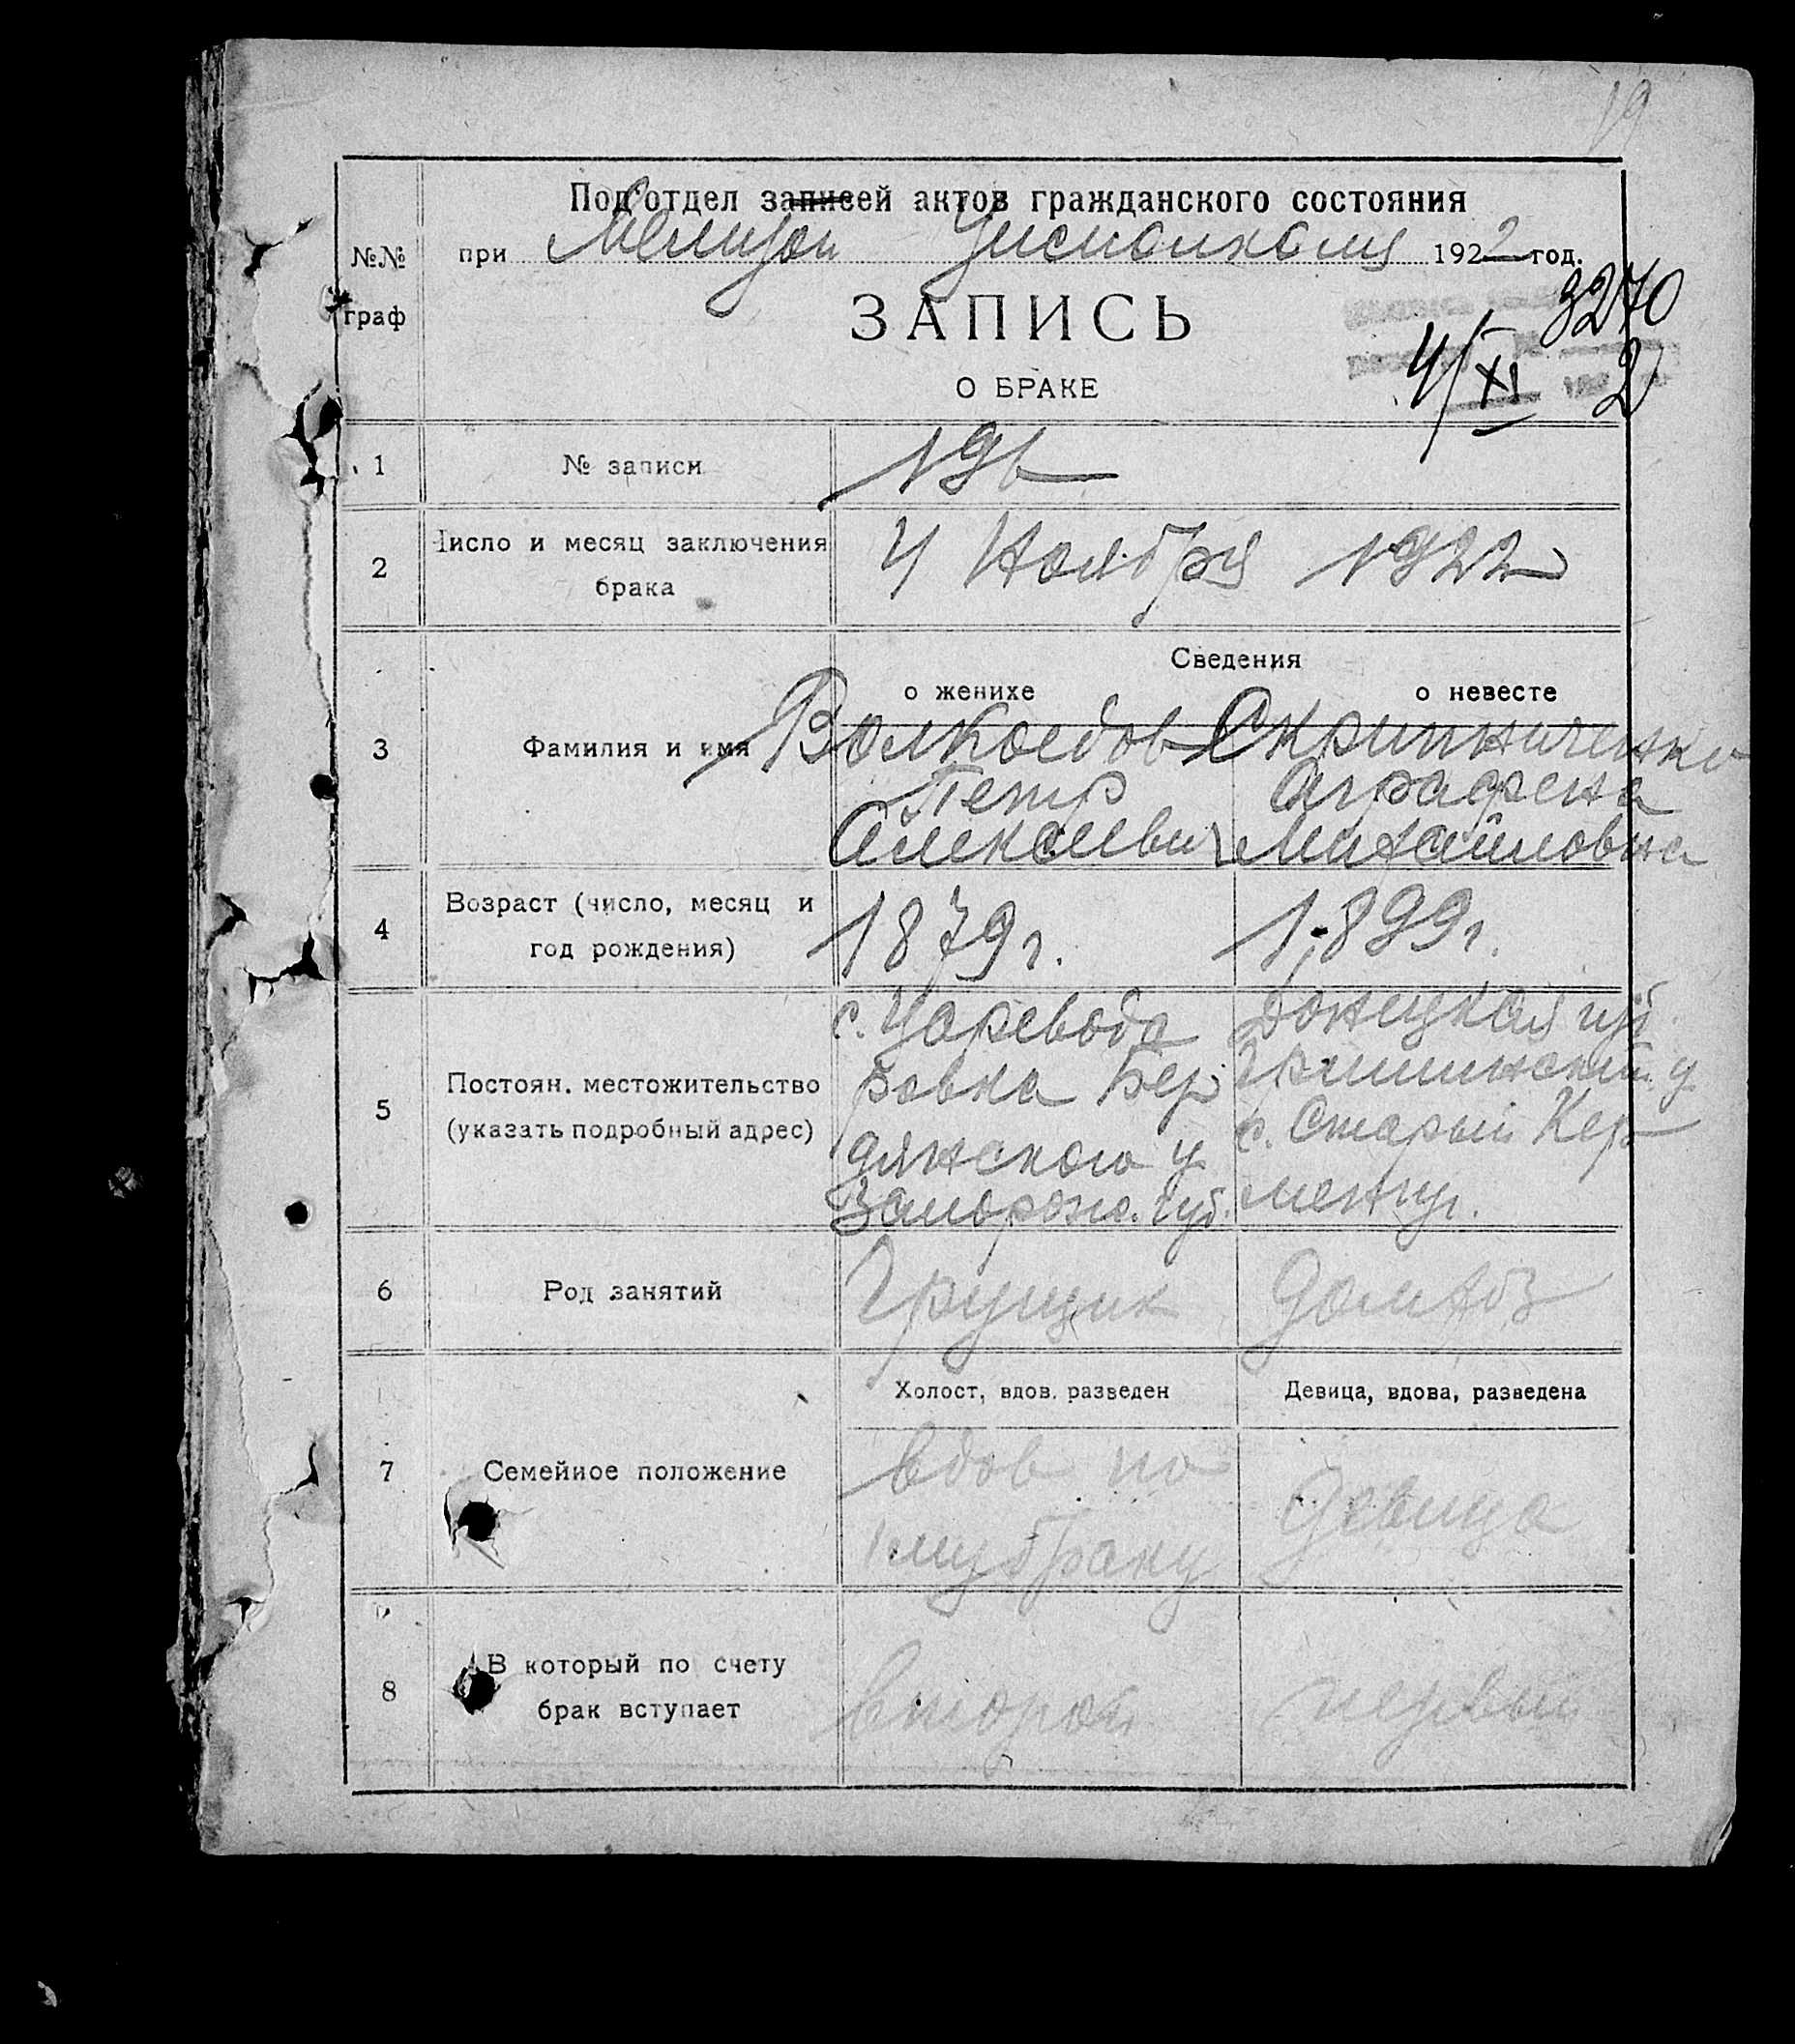 19
Подотдел записей актов гражданского состояния
№№ при Исполкома 1922 год.
3270
граф
ЗАПИСЬ
4/XI 2
О БРАКЕ
1 № записи 196
2 Число и месяц заключения брака 4 Ноября 1922
Сведения
о женихе о невесте
3 Фамилия и имя Волкоедов Скрипниченко
Петр Аграфена
Алексеевич Михайловна
4 Возраст (число, месяц и год рождения) 1879 г. 1899 г.
с. Царевода Донецкая губ.
ровка Бер Гришинский у.
5 Постоян. местожительство (указать подробный адрес) дянского у с. Старый Кер
Запорож. губ. менчуг.
6 Род занятий Грущик домхоз
Холост, вдов. разведен Девица, вдова, разведена
7 Семейное положение вдов по Девица
1му браку
8 В который по счету брак вступает второй первый